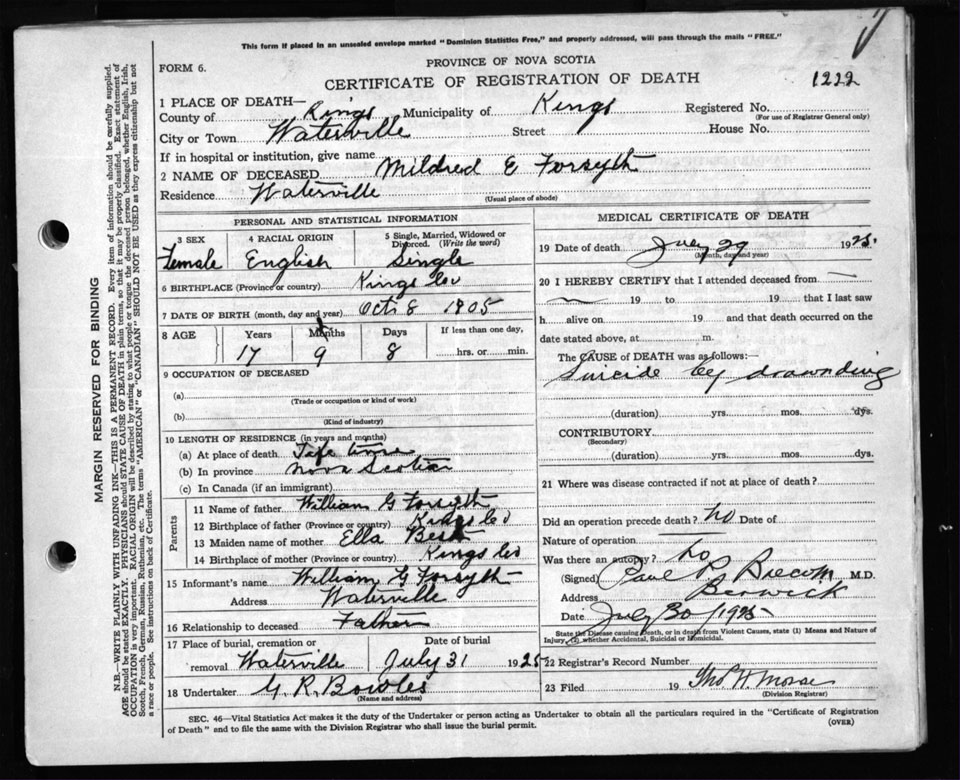 This form if placed in an unsealed envelope marked "Dominion Statistics Free," and properly addressed, will pass through the mails "FREE."
PROVINCE OF NOVA SCOTIA
FORM 6.
CERTIFICATE OF REGISTRATION OF DEATH
1222
1 PLACE OF DEATH—
County of Kings Municipality of Kings Registered No.
(For use of Registrar General only)
City or Town Waterville Street House No.
If in hospital or institution, give name
2 NAME OF DECEASED Mildred E Forsyth
Residence Waterville
(Usual place of abode)
PERSONAL AND STATISTICAL INFORMATION
3 SEX 4 RACIAL ORIGIN 5 Single, Married, Widowed or
Divorced. (Write the word)
Female English Single
6 BIRTHPLACE (Province or country) Kings Co
7 DATE OF BIRTH (month, day and year) Oct 8 1905
8 AGE Years Months Days If less than one day,
17 9 8 hrs. or min.
9 OCCUPATION OF DECEASED
(a)
(Trade or occupation or kind of work)
(b)
(Kind of industry)
10 LENGTH OF RESIDENCE (in years and months)
(a) At place of death Life time
(b) In province Nova Scotia
(c) In Canada (if an immigrant)
Parents
11 Name of father William G Forsyth
12 Birthplace of father (Province or country) Kings Co
13 Maiden name of mother Ella
14 Birthplace of mother (Province or country) Kings Co
15 Informant's name William G Forsyth
Address Waterville
16 Relationship to deceased Father
17 Place of burial, cremation or Date of burial
removal Waterville July 31 1925
18 Undertaker G. R. Bowles
(Name and address)
MEDICAL CERTIFICATE OF DEATH
19 Date of death July 29 1925.
(Month, day and year)
20 I HEREBY CERTIFY that I attended deceased from
19 to 19 that I last saw
h alive on 19 and that death occurred on the
date stated above, at m.
The CAUSE of DEATH was as follows:
Suicide by drawnding
(duration) yrs. mos. dys.
CONTRIBUTORY
(Secondary)
(duration) yrs. mos. dys.
21 Where was disease contracted if not at place of death?
Did an operation precede death? no Date of
Nature of operation
Was there an autopsy? no
(Signed) Paul R M.D.
Address Berwick
Date July 30/1925
State the Disease causing Death, or in death from Violent Causes, state (1) Means and Nature of
Injury, (2) whether Accidental, Suicidal or Homicidal.
22 Registrar's Record Number
23 Filed 19 Tho. W. Morse
(Division Registrar)
SEC. 46—Vital Statistics Act makes it the duty of the Undertaker or person acting as Undertaker to obtain all the particulars required in the "Certificate of Registration
of Death" and to file the same with the Division Registrar who shall issue the burial permit.
(OVER)
MARGIN RESERVED FOR BINDING
N.B.—WRITE PLAINLY WITH UNFADING INK—THIS IS A PERMANENT RECORD. Every item of information should be carefully supplied.
AGE should be stated EXACTLY. PHYSICIANS should STATE CAUSE OF DEATH in plain terms, so that it may be properly classified. Exact statement of
OCCUPATION is very important. RACIAL ORIGIN will be described by stating to what people or tongue the deceased person belonged, whether English, Irish,
Scotch, French, German, Russian, Ruthenian, etc. The terms "AMERICAN" or "CANADIAN" SHOULD NOT BE USED as they express citizenship but not
a race or people. See instructions on back of Certificate.